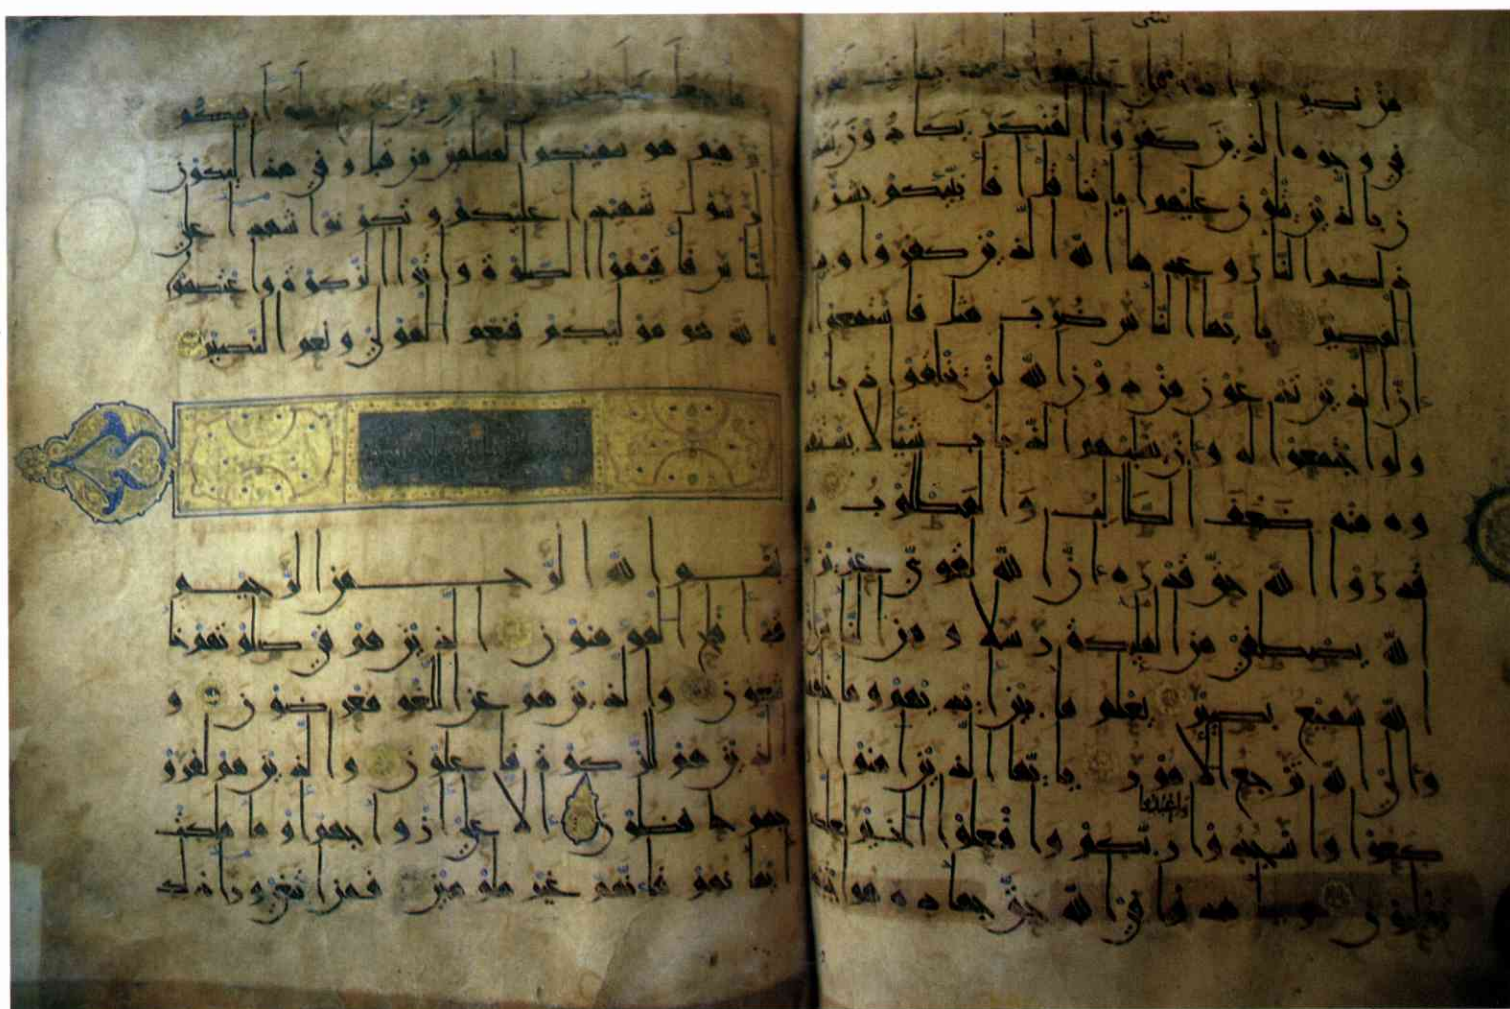 تتلى
من نصير واذا عليهم ايتنا بينت تعرف
في وجوه الذين كفروا المنكر يكادون يسطو
ن بالذين يتلون عليهم ايتنا قل افانبئكم بشر م
ن ذلكم النار وعدها الله الذين كفروا وبئس
المصير يايها الناس ضرب مثل فاستمعوا له
ان الذين تدعون من دون الله لن يخلقوا ذبابا
ولو اجتمعوا له وان يسلبهم الذباب شيئا لا يستنقذ
وه منه ضعف الطالب والمطلوب ما
قدروا الله حق قدره ان الله لقوي عزيز ا
لله يصطفي من الملئكة رسلا ومن الناس ان
الله سميع بصير يعلم ما بين ايديهم وما خلفهم
والى الله ترجع الامور يايها الذين امنوا ار
واعبدوا
كعوا واسجدوا ربكم وافعلوا الخير لعلكم
تفلحون وجاهدوا في الله حق جهاده هو اجتبيكم
وما جعل عليكم في الدين من حرج ملة ابيكم
ابرهيم هو سميكم المسلمين من قبل وفي هذا ليكون
الرسول شهيدا عليكم وتكونوا شهدا على
الناس فاقيموا الصلوة واتوا الزكوة واعتصموا
بالله هو موليكم فنعم المولى ونعم النصير
بسم الله الرحمن الرحيم
قد افلح المومنون الذين هم في صلوتهم خا
شعون والذين هم عن اللغو معرضون و
الذين هم للزكوة فاعلون والذين هم لفرو
جهم حافظون الا على ازواجهم او ما ملكت
ايمانهم فانهم غير ملومين فمن ابتغى ورا ذلك